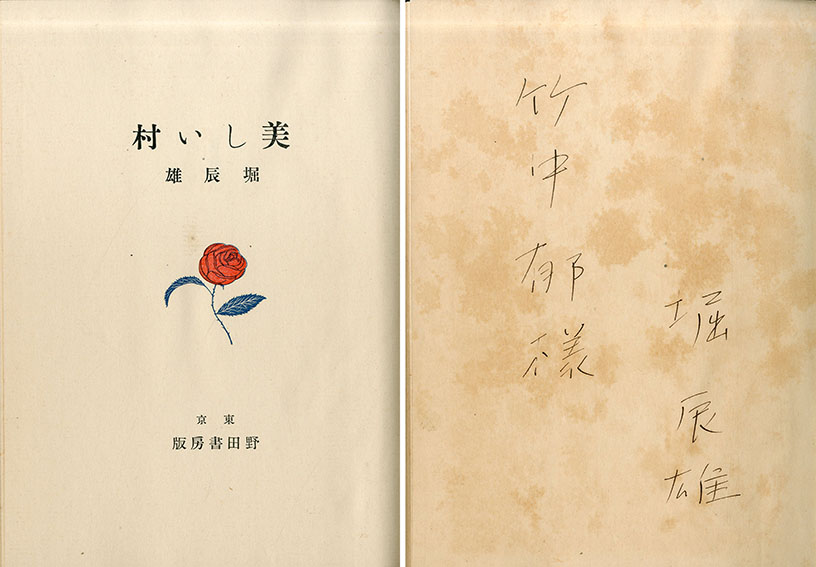 美しい村
堀辰雄
東京
野田書房版
堀辰雄
竹中郁様